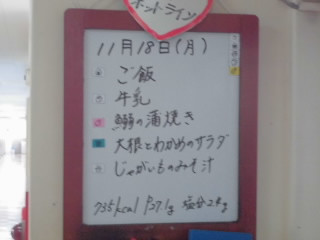 ホットライン
11月18日(月)
ご飯
牛乳
鰯の蒲焼き
大根とわかめのサラダ
じゃがいものみそ汁
735kcal P27.1g 塩分2.4g